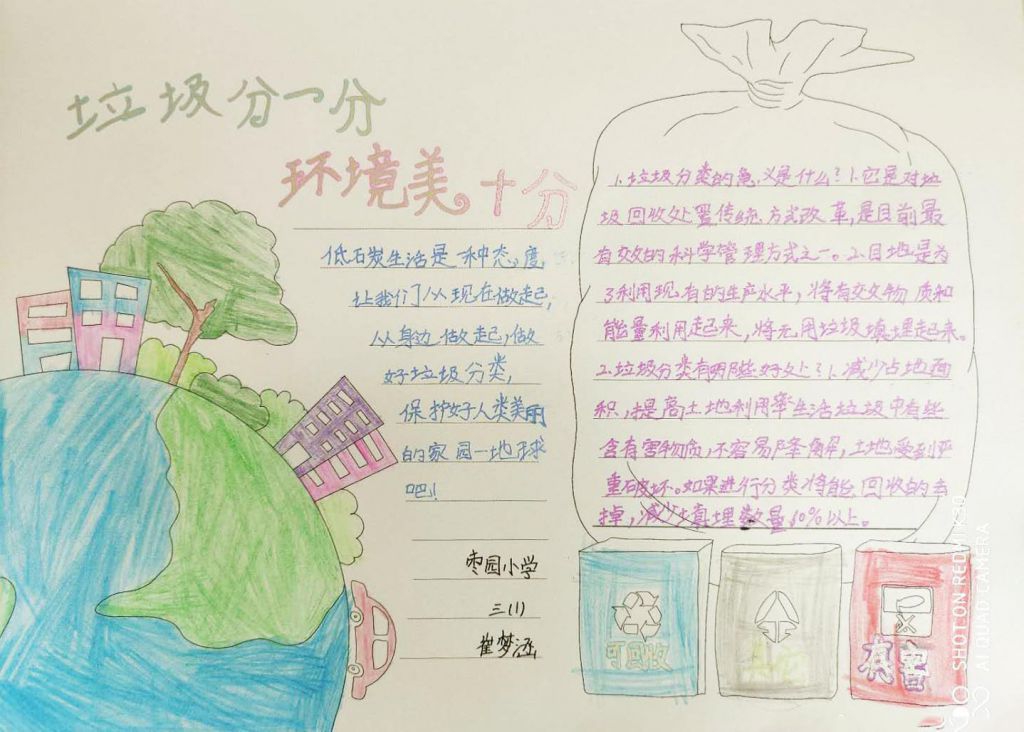 垃圾分一分
环境美。十分
低石炭生活是一种态度,
让我们从现在做起,
从身边做起,做
好垃圾分类,
保护好人类美丽
的家园一地球
吧!
枣园小学
三(1)
崔梦涵
1.垃圾分类的意义是什么?1.它是对垃
圾回收处置传统方式改革,是目前最
有效的科学管理方式之一。2.目地是为
了利用现有的生产水平,将有效物质和
能量利用起来,将无用垃圾填埋起来。
2.垃圾分类有哪些好处?1.减少占地面
积,提高土地利用率生活垃圾中有些
含有害物质,不容易降解,土地受到严
重破坏。如果进行分类将能回收的去
掉,减少填埋数量60%以上。
可回收
有害
SHOT ON REDMI K30
AI QUAD CAMERA